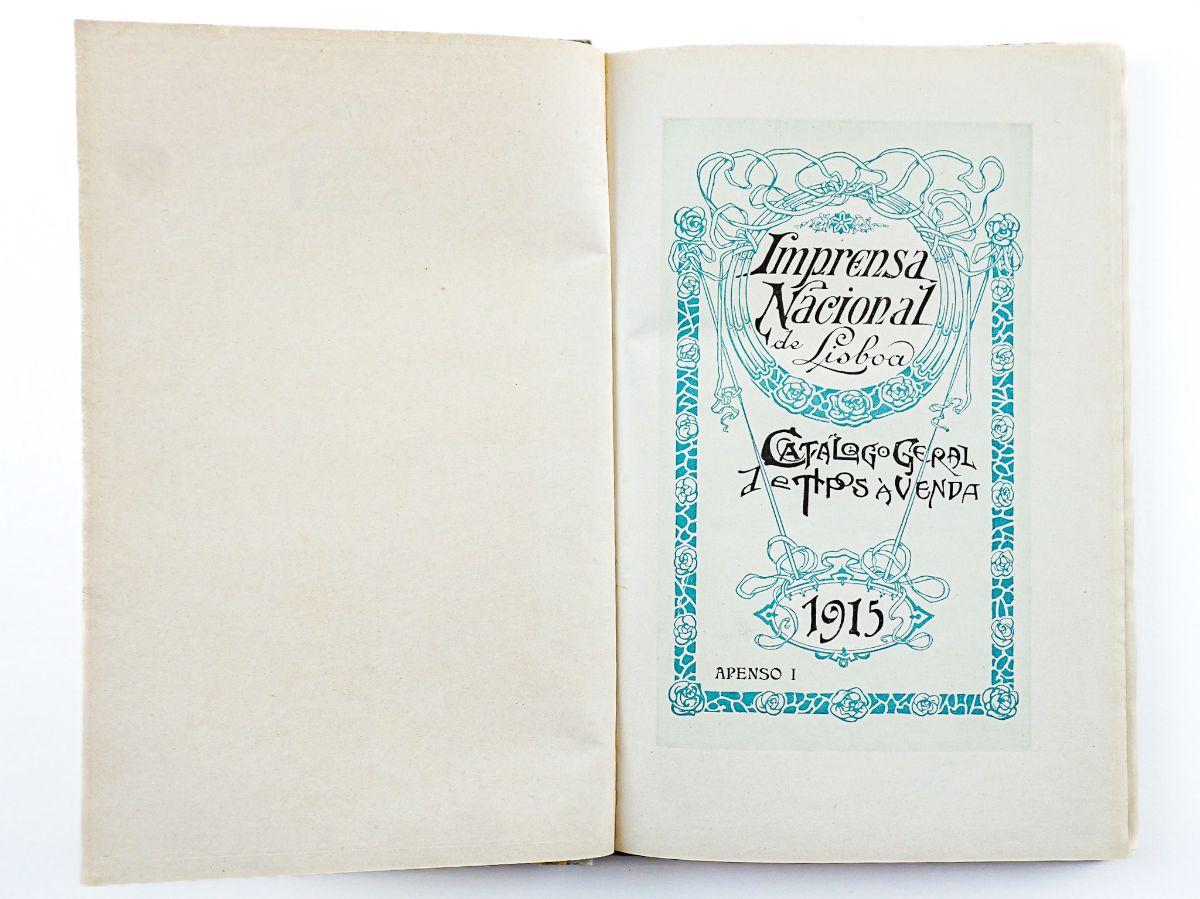 Imprensa
Nacional
de Lisboa
Catálogo Geral
de Tipos à Venda
1915
APENSO I